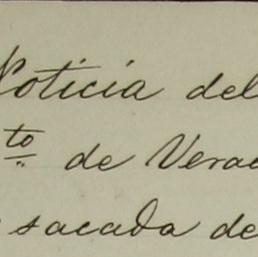 Noticia del
to de Verac
sacada de